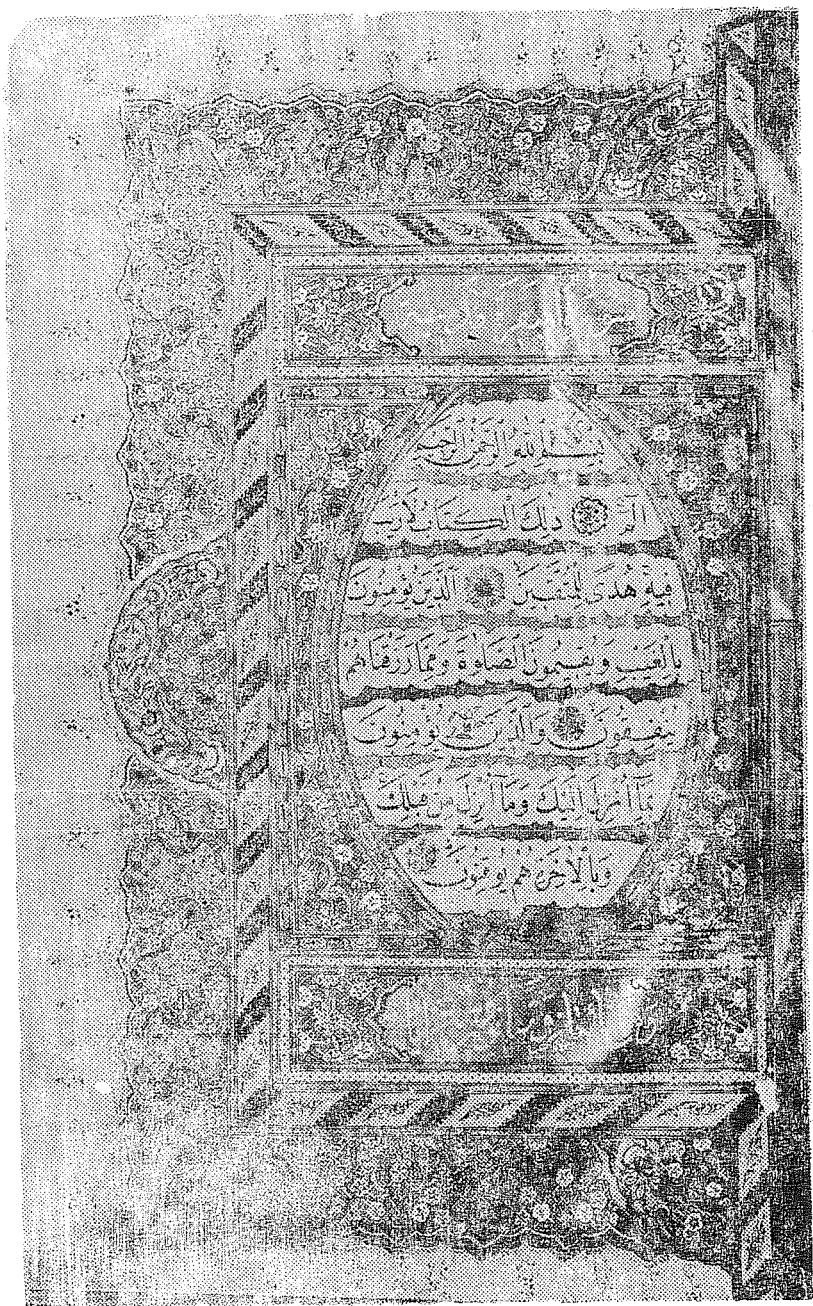 بِسْمِ اللهِ الرَّحْمٰنِ الرَّحِيمِ
الٓمٓ ذٰلِكَ الْكِتَابُ لَارَيْبَ
فِيهِ هُدًى لِلْمُتَّقِينَ الَّذِينَ يُؤْمِنُونَ
بِالْغَيْبِ وَيُقِيمُونَ الصَّلٰوةَ وَمِمَّا رَزَقْنَاهُمْ
يُنْفِقُونَ وَالَّذِينَ يُؤْمِنُونَ
بِمَٓا اُنْزِلَ اِلَيْكَ وَمَٓا اُنْزِلَ مِنْ قَبْلِكَ
وَبِالْاٰخِرَةِ هُمْ يُوقِنُونَ